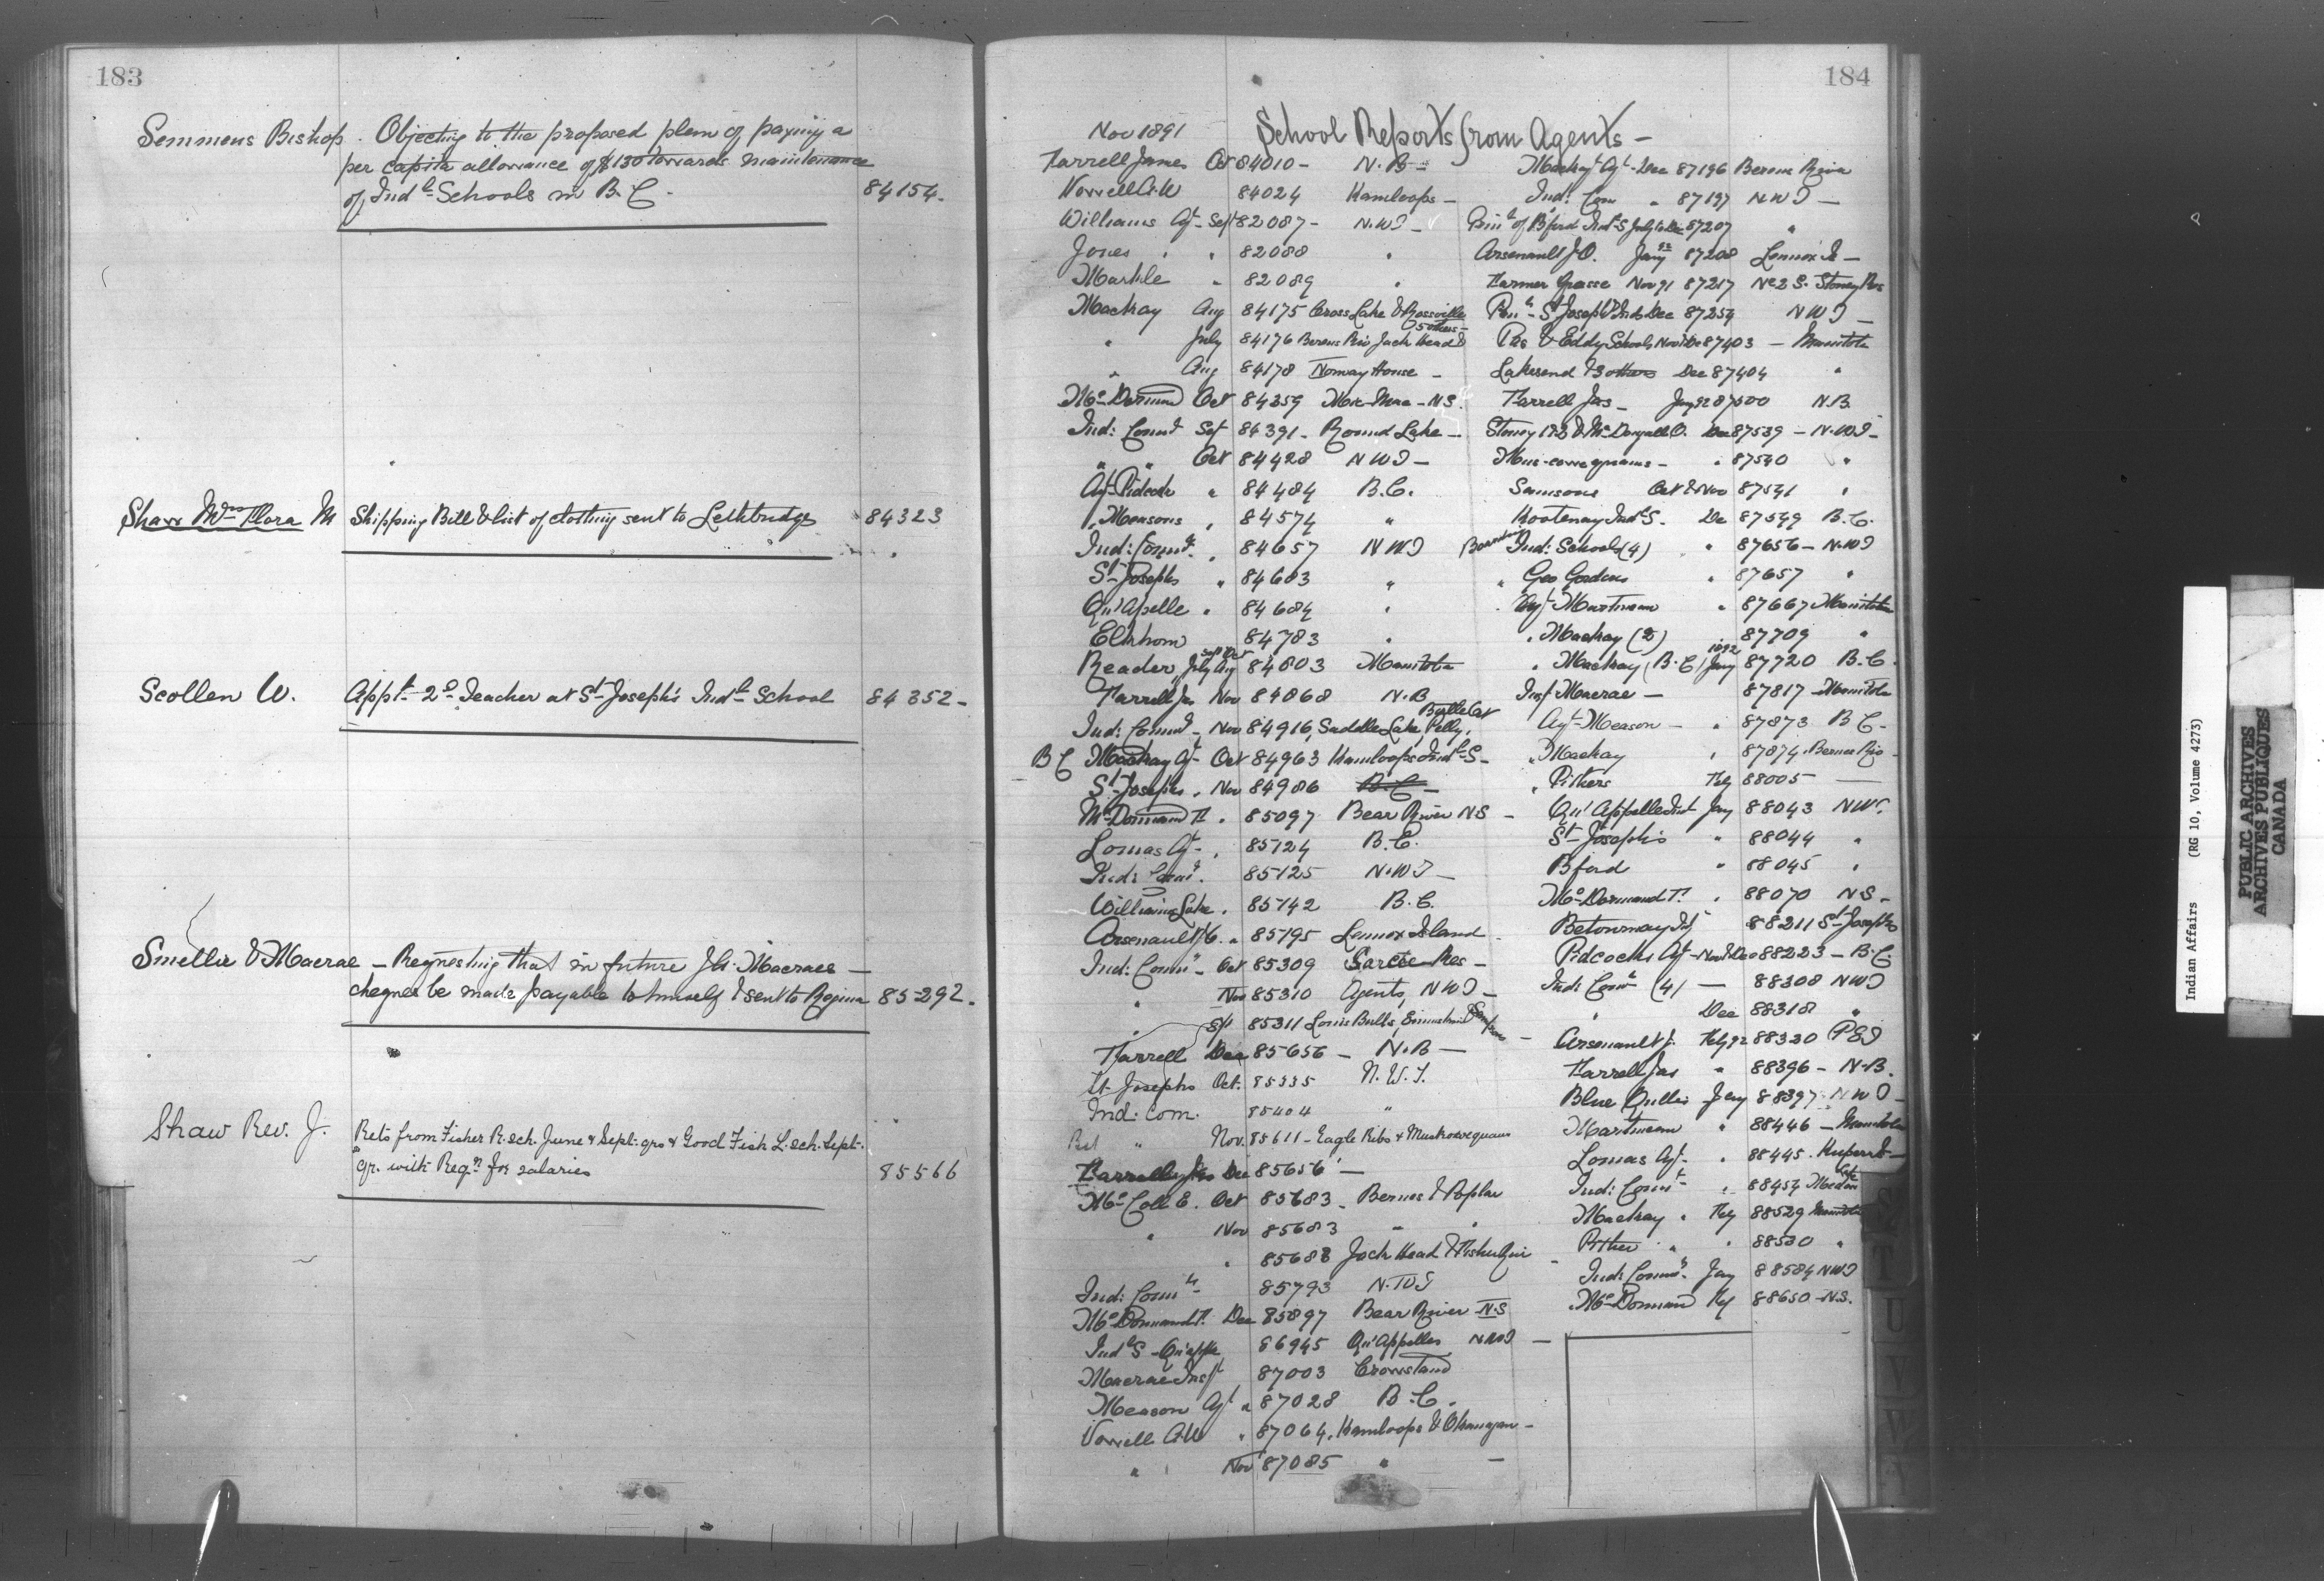 183
Semmens Bishop. Objecting to the proposed plan of paying a
per capita allowance of $130 towards maintenance
of Indl Schools in B.C. 84154.
Shaw Mrs Flora M Shipping Bill & list of clothing sent to Lethbridge 84323
Scollen W. Appt. 2d Teacher at St Joseph's Indl School 84352 -
Smellie & Macrae - Requesting that in future J.A. Macraes -
cheques be made payable to himself & sent to Regina 85292.
Shaw Rev. J. Rets from Fisher R. sch. June & Sept. qrs & Good Fish L. sch. Sept.
qr. with Reqn for salaries 85566
184
Nov 1891 School Reports from Agents -
Farrell James Oct 84010 - N.B -
Vowell A W 84024 Kamloops -
Williams Agt - Sept 82087 - N.W.T -
Jones " " 82088 "
Markle " 82089 "
Mackay Aug 84175 Cross Lake & Rossville
5 others -
" July 84176 Berens Riv Jack Head &
" Aug 84178 Norway House -
McDermand Oct 84359 Mic Mac - N.S.
Ind: Commr Sept 84391 - Round Lake -
" " Oct 84428 N W T -
Agt Pidcock " 84484 B.C.
" Measons " 84574 "
Ind: Commr " 84657 N W T
St Josephs " 84683 "
Qu'Appelle " 84684 "
Elkhorn 84783 "
Reader July Aug Sept Oct 84803 Manitoba
Farrell Jas Nov 84868 N.B
Ind: Commr - Nov 84916, Saddle Lake, Pelly,
B C Mackay Agt - Oct 84963 Kamloops Indl S -
St Josephs " Nov 84986 B C -
McDormand F " 85097 Bear River N S -
Lomas Agt - " 85124 B.C.
Ind: Comr. 85125 N.W.T -
Williams Lake " 85142 B.C.
Arsenault J.O. " 85195 Lennox Island
Ind: Commr - Oct 85309 Sarcee Res -
" Nov 85310 Agents, N W T -
" Sept 85311 Louis Bulls, Ermineskin & Sampsons
Farrell Dec 85656 - N.B -
St Josephs Oct. 85335 N.W.T.
Ind: Com. 85404 "
Ret " Nov. 85611 - Eagle Ribs & Muskowequans
Farrell Jas Dec 85656 -
McColl E. Oct 85683 - Berens & Poplar
" Nov 85683 " "
" 85688 Jack Head & Fisher Riv
Ind: Commr - 85793 N.W.T
McDormand F. Dec 85897 Bear River N.S
Indl S - Qu'appe 86945 Qu'Appelles N W T -
Macrae Inspt 87003 Crowstand
Meason Agt " 87028 B.C.
Vowell A W " 87064. Kamloops & Okanagan -
" Nov 87085 " -
Mackay Agt - Dec 87196 Berens River
Ind: Com " 87197 N W T -
Prinl of Bford Indl S July to Dec 87207 "
Arsenault J.O. Jany 92 87208 Lennox Is -
Farmer Grasse Nov 91 87217 No 2 S. Stoney Res
Prinl - St Josephs Ind Dec 87254 N W T -
Pas & Eddy Schools Nov & Dec 87403 - Manitoba
Lakesend & 3 others Dec 87404 "
Farrell Jas - Jany 92 87500 N.B.
Stoney 1 & 2 & McDougall O. Dec 87539 - N.W.T -
Mus-cowequans - " 87540 "
Samsons Oct & Nov 87541 "
Kootenay Indl S. De 87549 B.C.
Boarding Ind: Schools (4) " 87656 - N.W.T
" Geo Gordons " 87657 "
Agt - Martineau " 87667 Manitoba
" Mackay (2) 87709 "
" Mackay (B.C) Jany 1892 87720 B.C.
Insp Macrae - 87817 - Manitoba
Agt - Meason - " 87873 B C -
" Mackay " 87874 Berens Riv -
" Pithers Feby 88005 -
Qu'Appelle Ind Jany 88043 N W T
St Josephs " 88044 "
Bford " 88045 "
McDormand F. " 88070 N S -
Betournay 88211 St Josephs
Pidcocks Agt - Nov & Dec 88223 - B.C.
Ind: Comr (4) - 88308 N W T
" Dec 88318 "
Arsenault J. Feby 92 88320 P E I
Farrell Jas " 88396 - N.B.
Blue Quills Jany 88397 - N W T -
Martineau " 88446 - Manitoba
Lomas Agt - " 88445. Kuper Is -
Ind: Commr - " 88454 Medicine
Mackay " Feby 88529 Manitoba
Pither " " 88530 "
Ind: Commr - Jany 88584 N W T
McDormand Feby 88650 - N.S.
Indian Affairs (RG 10, Volume 4273)
PUBLIC ARCHIVES
ARCHIVES PUBLIQUES
CANADA
U
V
W
Y